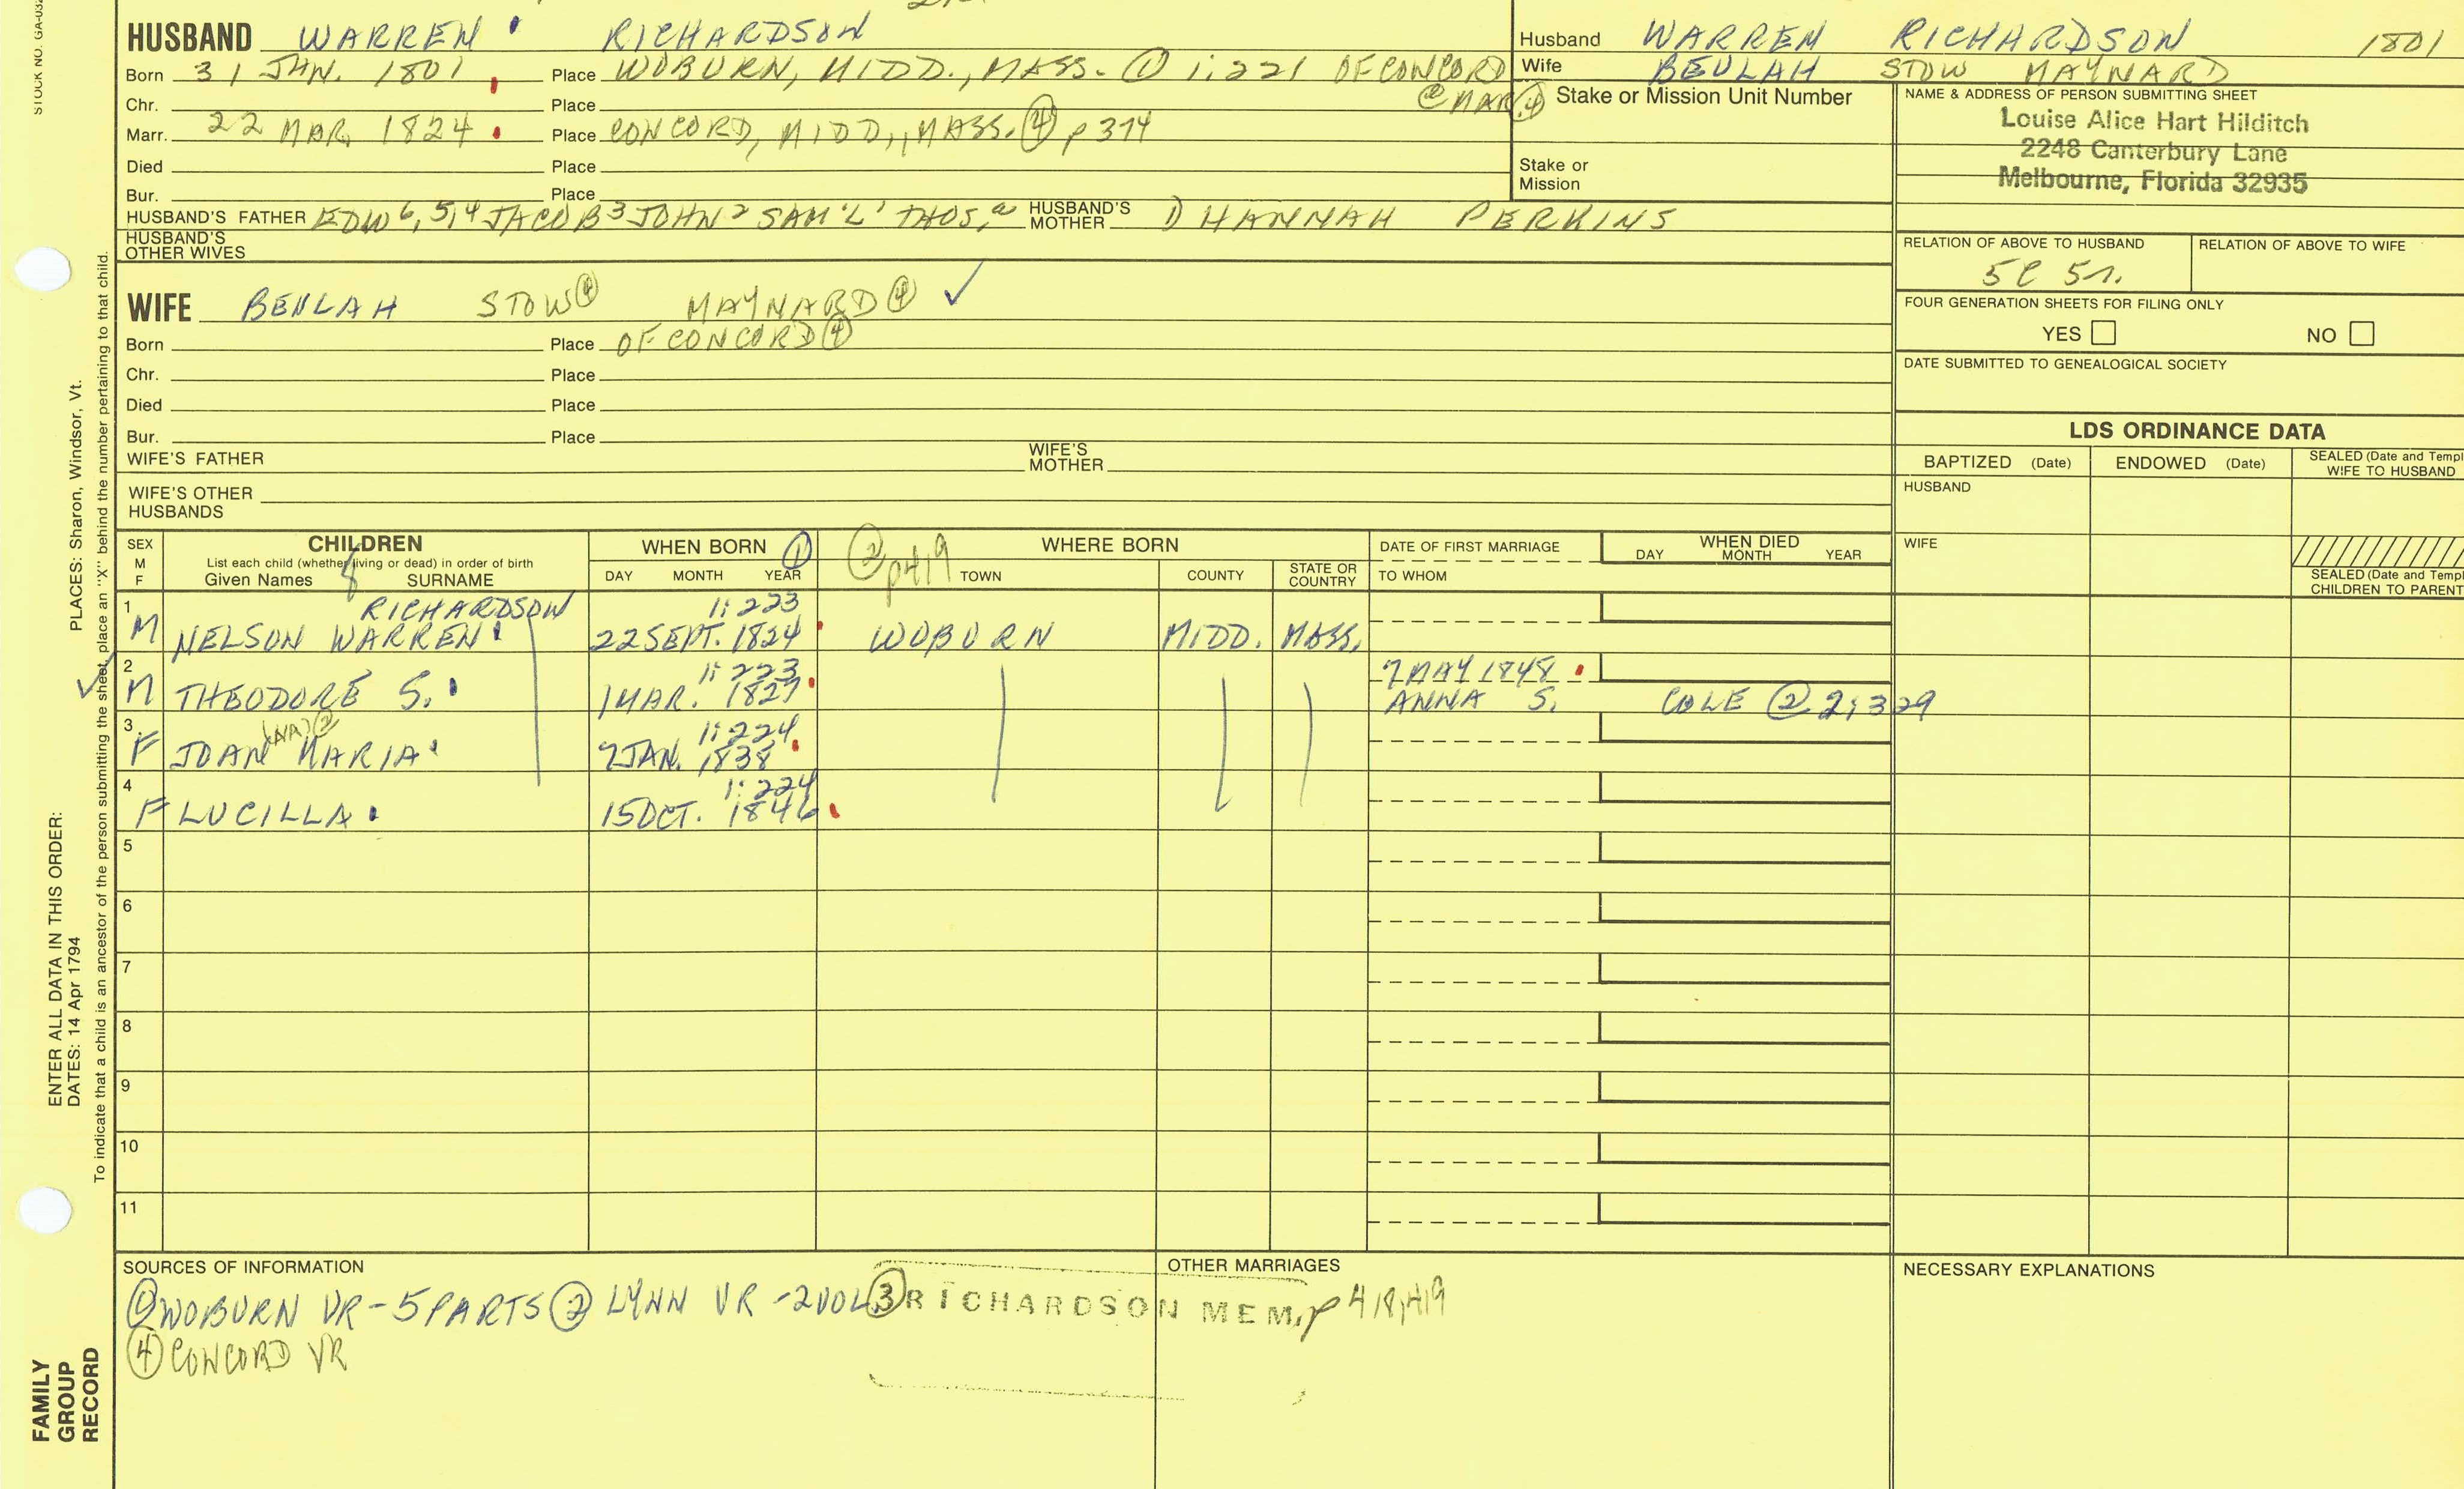 STOCK NO. GA-032
HUSBAND WARREN RICHARDSON
Born 31 JAN. 1801 Place WOBURN, MIDD., MASS. ① 1:221 OF CONCORD
@ MAR ④
Chr. Place
Marr. 22 MAR 1824 Place CONCORD, MIDD., MASS. ④ p 314
Died Place
Bur. Place
HUSBAND'S FATHER EDW 6,5,4 JACOB 3 JOHN 2 SAM'L 1 THOS. a HUSBAND'S MOTHER D HANNAH PERKINS
HUSBAND'S OTHER WIVES
WIFE BEULAH STOW ④ MAYNARD ④ ✓
Born Place OF CONCORD ④
Chr. Place
Died Place
Bur. Place
WIFE'S FATHER WIFE'S MOTHER
WIFE'S OTHER HUSBANDS
Husband WARREN RICHARDSON 1801
Wife BEULAH STOW MAYNARD
Stake or Mission Unit Number
Stake or Mission
NAME & ADDRESS OF PERSON SUBMITTING SHEET
Louise Alice Hart Hilditch
2248 Canterbury Lane
Melbourne, Florida 32935
RELATION OF ABOVE TO HUSBAND RELATION OF ABOVE TO WIFE
5C 5r.
FOUR GENERATION SHEETS FOR FILING ONLY
YES NO
DATE SUBMITTED TO GENEALOGICAL SOCIETY
LDS ORDINANCE DATA
BAPTIZED (Date) ENDOWED (Date) SEALED (Date and Templ
WIFE TO HUSBAND
HUSBAND
WIFE
SEALED (Date and Templ
CHILDREN TO PARENT
SEX M F
CHILDREN
List each child (whether living or dead) in order of birth
Given Names SURNAME
8
WHEN BORN ①
DAY MONTH YEAR
② p419 WHERE BORN
TOWN COUNTY STATE OR COUNTRY
DATE OF FIRST MARRIAGE
TO WHOM
WHEN DIED
DAY MONTH YEAR
1 RICHARDSON 1:223
M NELSON WARREN 22 SEPT. 1824 WOBURN MIDD. MASS.
2 1:223 7 MAY 1848
✓ M THEODORE S. 1 MAR. 1827 ANNA S. COLE @ ② 2:329
3 (NA) ② 1:224
F JOAN MARIA 7 JAN. 1838
4 1:224
F LUCILLA 15 OCT. 1846
5
6
7
8
9
10
11
SOURCES OF INFORMATION
① WOBURN VR - 5 PARTS ② LYNN VR - 2 VOL ③ RICHARDSON MEM, p 418,419
④ CONCORD VR
OTHER MARRIAGES
NECESSARY EXPLANATIONS
PLACES: Sharon, Windsor, Vt.
To indicate that a child is an ancestor of the person submitting the sheet, place an "X" behind the number pertaining to that child.
ENTER ALL DATA IN THIS ORDER:
DATES: 14 Apr 1794
FAMILY
GROUP
RECORD